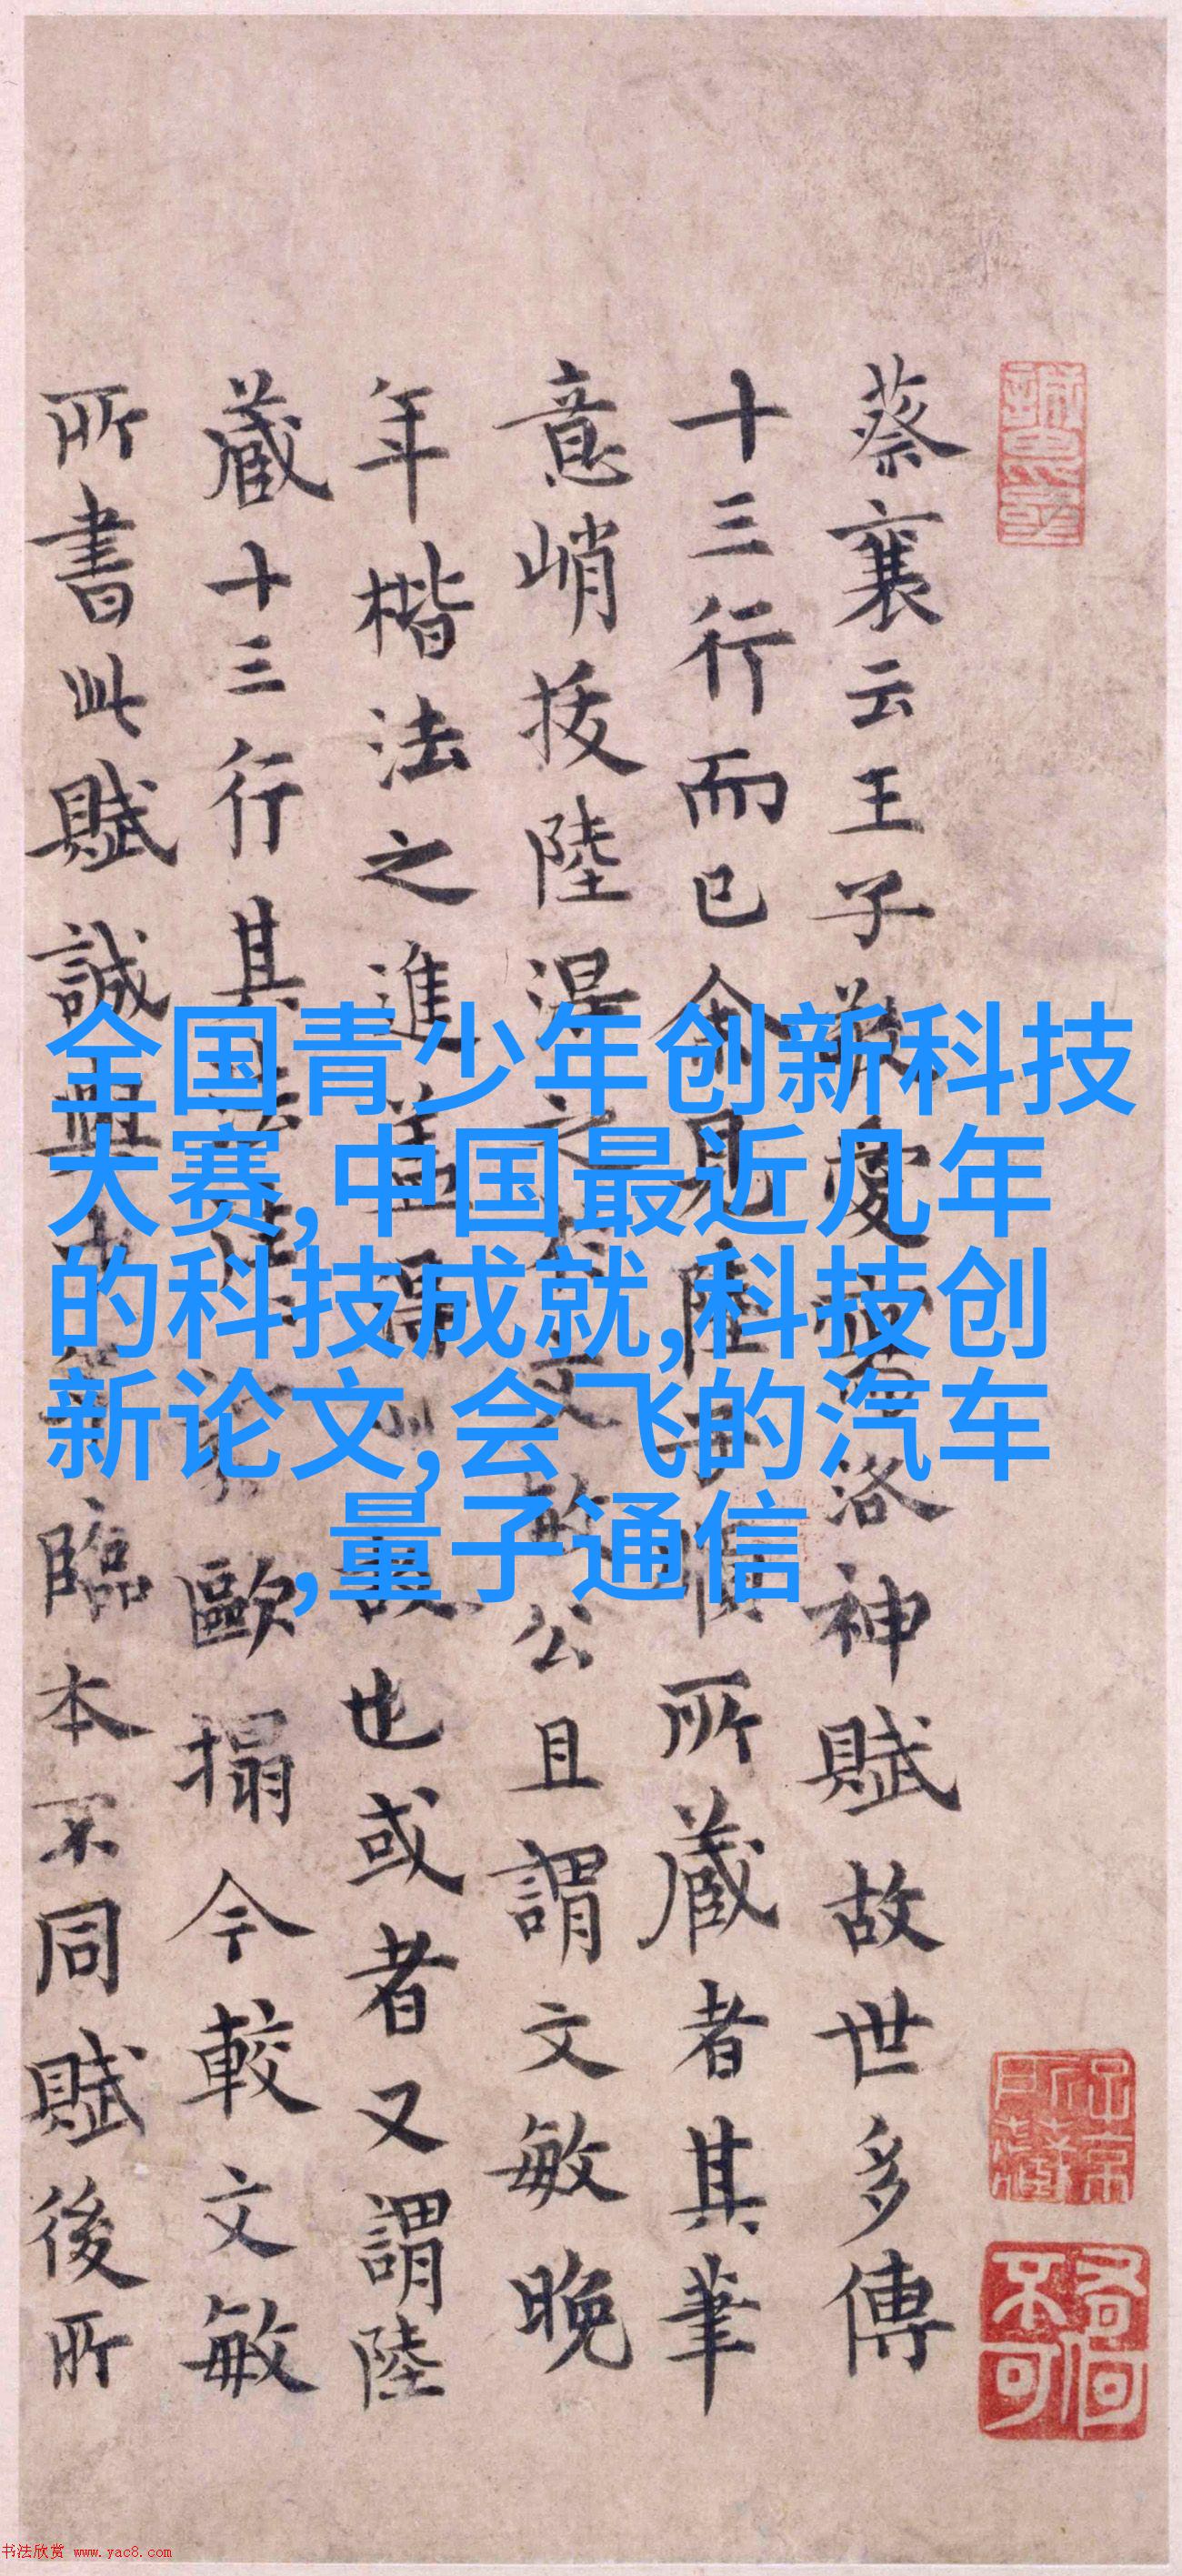 蔡襄云王子敬愛書洛神賦故世多傳
十三行而已余見陸子順所藏者其筆
意峭拔陸湜之文敏公且謂文敏晚
年楷法之進盖得也或者又謂陸
藏十三行其歐搨今較文敏
所書此賦誠與臨本不同賦後所
全国青少年创新科技
大赛,中国最近几年
的科技成就,科技创
新论文,会飞的汽车
,量子通信
书法欣赏 www.yac8.com